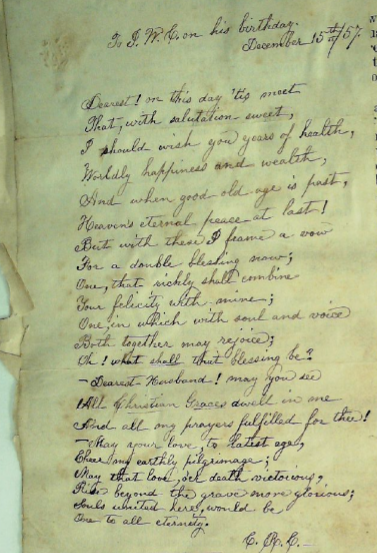 To J. W. C. on his birthday.
December 15th / 57.
Dearest! on this day 'tis meet
That, with salutation sweet,
I should wish you years of health,
Worldly happiness and wealth,
And when good old age is past,
Heaven's eternal peace at last!
But with these I frame a vow
For a double blessing now;
One, that richly shall combine
Your felicity with mine;
One, in which with soul and voice
Both together may rejoice;
Oh! what shall that blessing be?
- Dearest Husband! may you see
All Christian Graces dwell in me
And all my prayers fulfilled for thee!
- May your love, to latest age,
Cheer my earthly pilgrimage;
May that love, o'er death victorious,
Rise beyond the grave more glorious;
Souls united here, would be
One to all eternity.
C. R. C. -